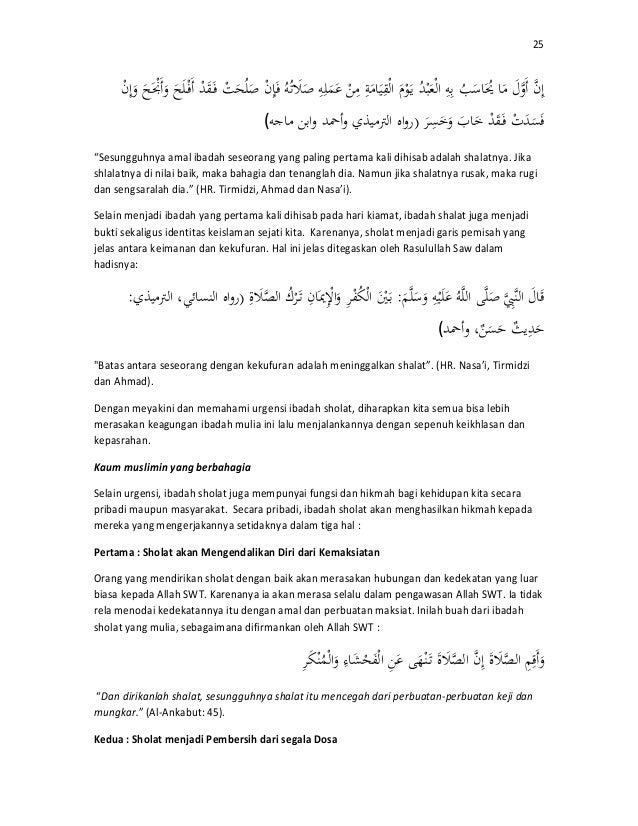 25
إِنَّ أَوَّلَ مَا يُحَاسَبُ بِهِ الْعَبْدُ يَوْمَ الْقِيَامَةِ مِنْ عَمَلِهِ صَلَاتُهُ فَإِنْ صَلُحَتْ فَقَدْ أَفْلَحَ وَأَنْجَحَ وَإِنْ
فَسَدَتْ فَقَدْ خَابَ وَخَسِرَ (رواه الترميذي وأحمد وابن ماجه)
“Sesungguhnya amal ibadah seseorang yang paling pertama kali dihisab adalah shalatnya. Jika
shlalatnya di nilai baik, maka bahagia dan tenanglah dia. Namun jika shalatnya rusak, maka rugi
dan sengsaralah dia.” (HR. Tirmidzi, Ahmad dan Nasa’i).
Selain menjadi ibadah yang pertama kali dihisab pada hari kiamat, ibadah shalat juga menjadi
bukti sekaligus identitas keislaman sejati kita.  Karenanya, sholat menjadi garis pemisah yang
jelas antara keimanan dan kekufuran. Hal ini jelas ditegaskan oleh Rasulullah Saw dalam
hadisnya:
قَالَ النَّبِيَّ صَلَّى اللَّهُ عَلَيْهِ وَسَلَّمَ: بَيْنَ الْكُفْرِ وَالْإِيمَانِ تَرْكُ الصَّلَاةِ (رواه النسائي، الترميذي:
حَدِيثٌ حَسَنٌ، وأحمد)
"Batas antara seseorang dengan kekufuran adalah meninggalkan shalat”. (HR. Nasa’i, Tirmidzi
dan Ahmad).
Dengan meyakini dan memahami urgensi ibadah sholat, diharapkan kita semua bisa lebih
merasakan keagungan ibadah mulia ini lalu menjalankannya dengan sepenuh keikhlasan dan
kepasrahan.
Kaum muslimin yang berbahagia
Selain urgensi, ibadah sholat juga mempunyai fungsi dan hikmah bagi kehidupan kita secara
pribadi maupun masyarakat.  Secara pribadi, ibadah sholat akan menghasilkan hikmah kepada
mereka yang mengerjakannya setidaknya dalam tiga hal :
Pertama : Sholat akan Mengendalikan Diri dari Kemaksiatan
Orang yang mendirikan sholat dengan baik akan merasakan hubungan dan kedekatan yang luar
biasa kepada Allah SWT. Karenanya ia akan merasa selalu dalam pengawasan Allah SWT. Ia tidak
rela menodai kedekatannya itu dengan amal dan perbuatan maksiat. Inilah buah dari ibadah
sholat yang mulia, sebagaimana difirmankan oleh Allah SWT :
وَأَقِمِ الصَّلَاةَ إِنَّ الصَّلَاةَ تَنْهَى عَنِ الْفَحْشَاءِ وَالْمُنْكَرِ
"Dan dirikanlah shalat, sesungguhnya shalat itu mencegah dari perbuatan-perbuatan keji dan
mungkar.” (Al-Ankabut: 45).
Kedua : Sholat menjadi Pembersih dari segala Dosa